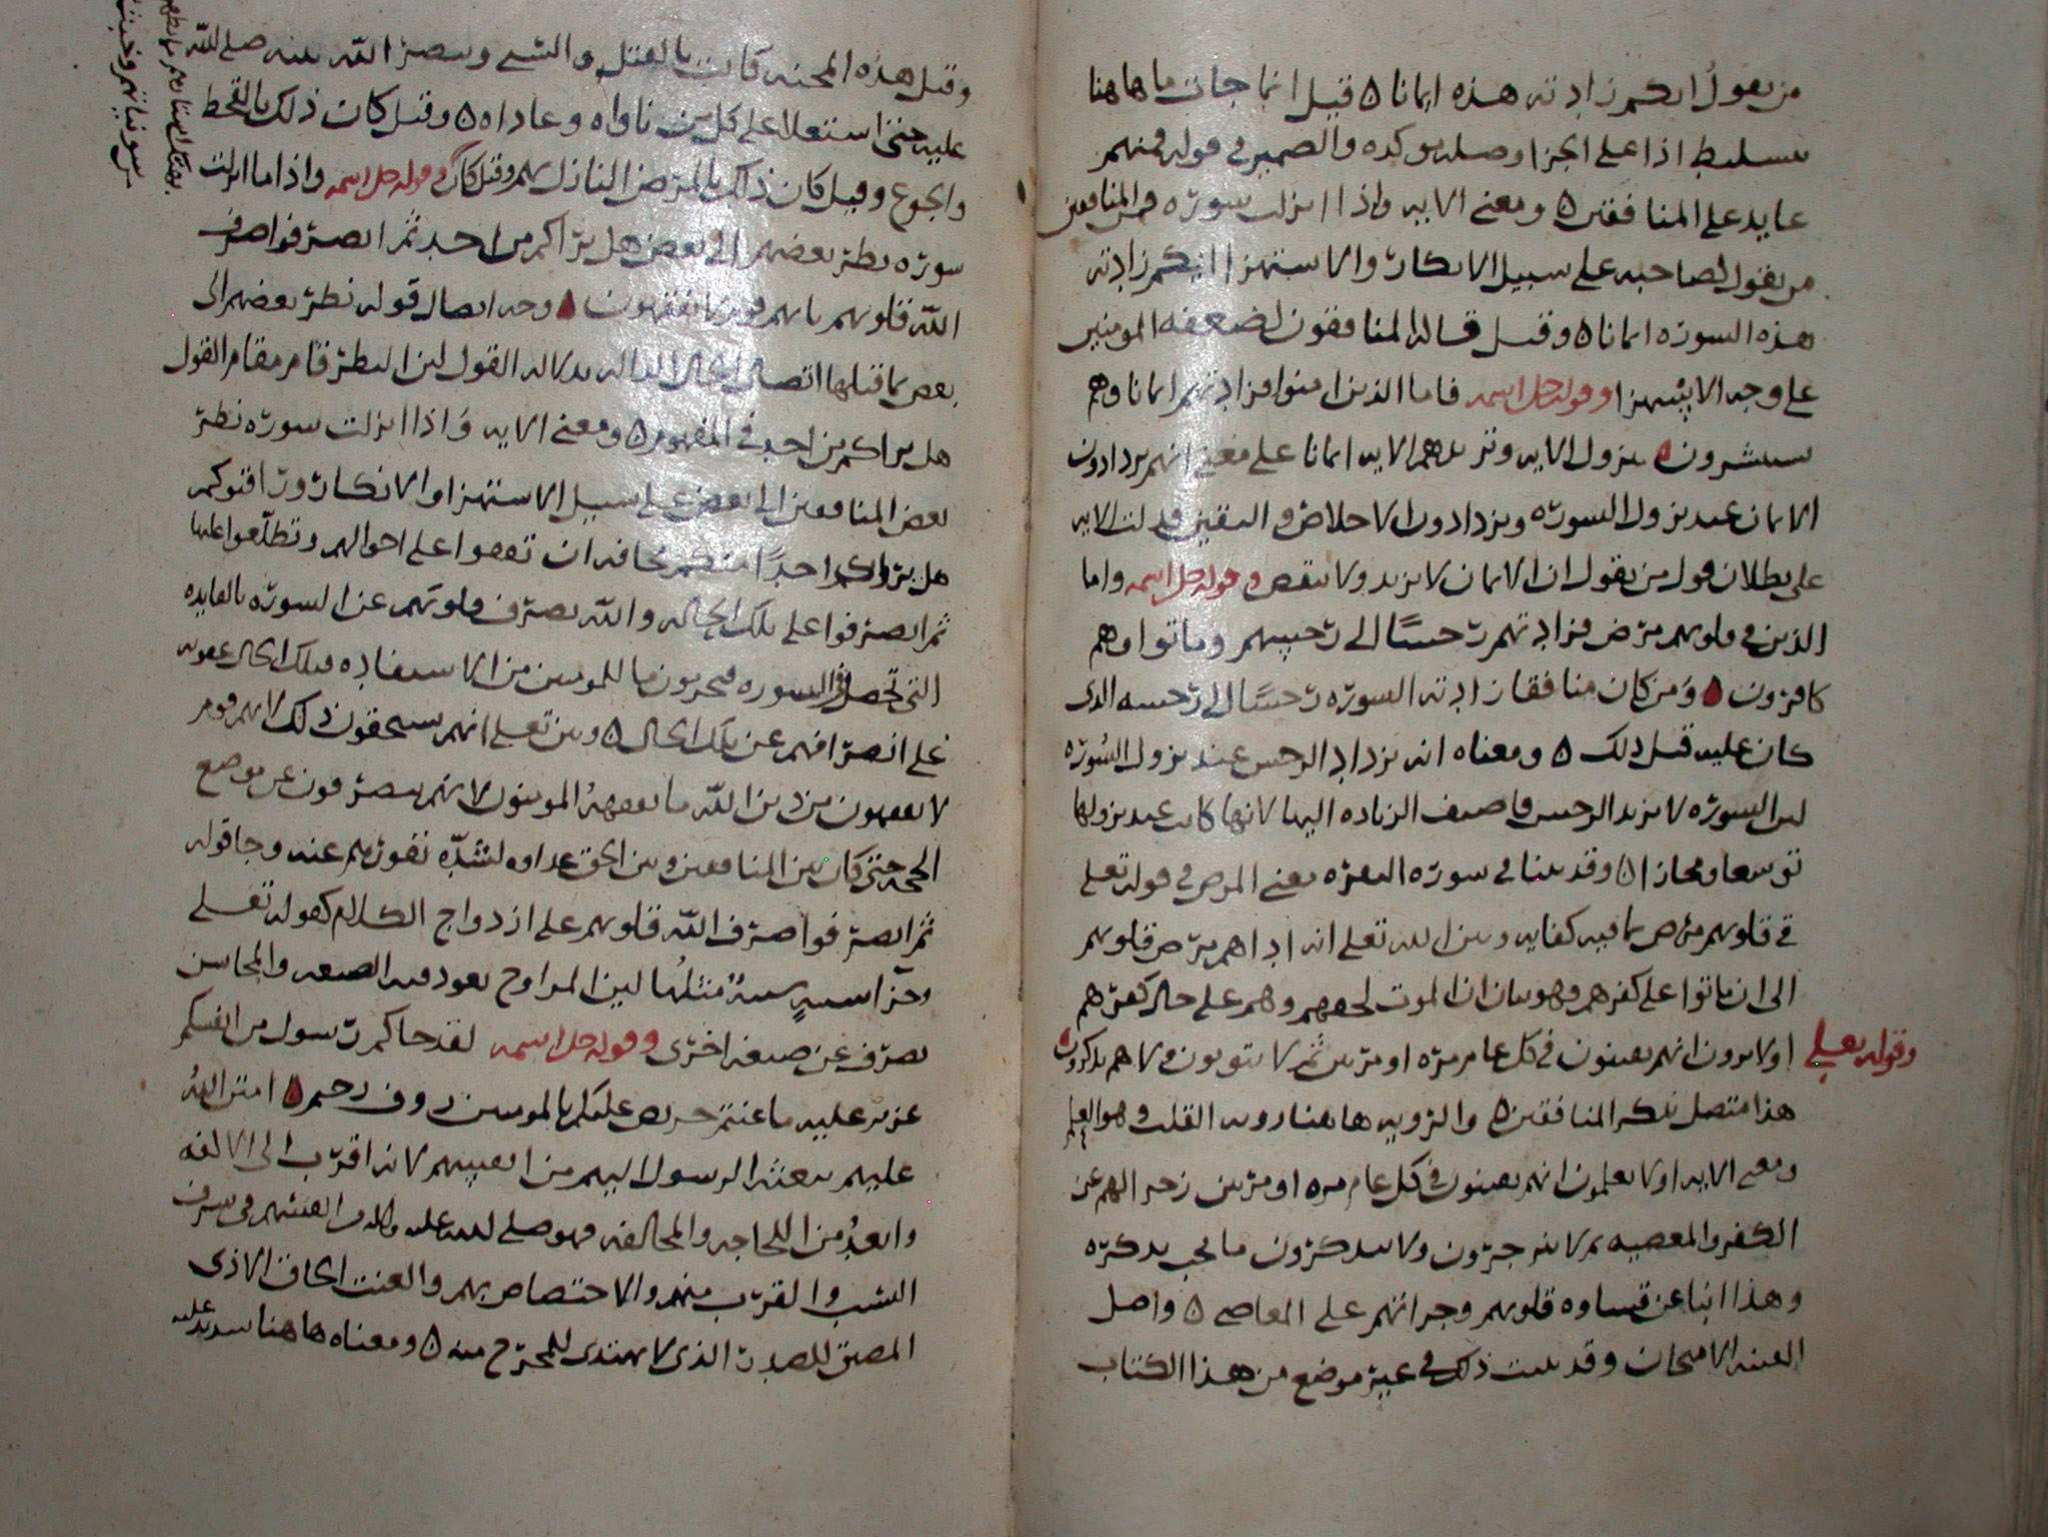 من يقول ايكم زادته هذه ايمانا ٥ قيل انما جات ما هاهنا
تسليط اذا على الجزا وصله موكده والضمير في قوله فمنهم
عايد على المنافقين ٥ ومعنى الايه واذا انزلت سوره فمن المنافقين
من يقول لصاحبه على سبيل الانكار والاستهزا ايكم زادته
هذه السوره ايمانا ٥ وقيل قاله المنافقون لضعفه المومنين
على وجه الاستهزا وقوله جل اسمه فاما الذين امنوا فزادتهم ايمانا وهم
يستبشرون ٥ بنزول الايه وتزيدهم الايه ايمانا على معنى انهم يزدادون
الايمان عند نزول السوره ويزدادون الاخلاص واليقين فدلت الايه
على بطلان قول من يقول ان الايمان لا يزيد ولا ينقص وقوله جل اسمه واما
الذين في قلوبهم مرض فزادتهم رجسًا الى رجسهم وماتوا وهم
كافرون ٥ ومن كان منافقا زادته السوره رجسًا الى رجسه الذى
كان عليه قبل ذلك ٥ ومعناه انه يزداد الرجس عند نزول السُوره
ليس السوره لا يزيد الرجس فاضيف الزياده اليها لانها كانت عند نزولها
توسعا ومجازا ٥ وقد بينا في سوره البقره معنى المرض في قوله تعلى
في قلوبهم مرض بما فيه كفايه وبين الله تعلى انه اداهم مرض قلوبهم
الى ان ماتوا على كفرهم وهو بيان ان الموت لحقهم وهم على حال كفرهم
وقوله تعلى اولا يرون انهم يفتنون في كل عام مره او مرتين ثم لا يتوبون ولا هم يذكرون ٥
هذا متصل بذكر المنافقين ٥ والرويه هاهنا رويه القلب وهو العلم
ومعنى الايه اولا يعلمون انهم يفتنون في كل عام مره او مرتين زجرا لهم عن
الكفر والمعصيه ثم لا ينزجرون ولا يتذكرون ما يجب تذكره
وهذا انبا عن قساوه قلوبهم وجراتهم على المعاصى ٥ واصل
الفتنه الامتحان وقد بينت ذلك في غير موضع من هذا الكتاب
وقيل هذه المحنه كانت بالقتل والسبى وينصر الله نبيه صلى الله
عليه حتى استعلا على كل من ناواه وعاداه ٥ وقيل كان ذلك بالقحط
والجوع وقيل كان ذلك بالمرض النازل بهم وقوله جل اسمه واذا ما انزلت
سوره نظر بعضهم الى بعض هل يراكم من احد ثم انصرفوا صرف
الله قلوبهم بانهم قوم لا يفقهون ٥ وجه اتصال قوله نظر بعضهم الى
بعض بما قبلها اتصال الحال الداله بدلاله القول لان النظر قام مقام القول
هل يراكم من احد في المفهوم ٥ ومعنى الايه واذا انزلت سوره نظر
بعض المنافقين الى بعض على سبيل الاستهزا والانكار
هل يراكم احدًا منكم مخافه ان تقفوا على احوالهم وتطلعوا عليها
ثم انصرفوا على تلك الحاله والله يصرف قلوبهم عن السوره بالفايده
التى تحصل في السوره فيحرمون ما للمومنين من الاستفاده فتلك الحال عقوبه
على انصرافهم عن تلك الحال ٥ وبين تعلى انهم يستحقون ذلك لانهم قوم
لا يفقهون من دين الله ما يفقههُ المومنون لانهم ينصرفون عن موضع
الحجه حتى كان بين المنافقين وبين الحق عداوه لشدّه نفورهم عنه وجا قوله
ثم انصرفوا صرف الله قلوبهم على ازدواج الكلام كقوله تعلى
وجزآ سييهٍ سييهٌ مثلُها لان المزاوج يعود فيه الصيغه والمجانس
يصرف عن صيغه اخرى وقوله جل اسمه لقد جاكم رسول من انفسكم
عزيز عليه ما عنتم حريص عليكم بالمومنين روف رحيم ٥ امتن اللهُ
عليهم ببعثه الرسول اليهم من انفسهم لانه اقرب الى الالفه
وابعدُ من اللجاجه والمخالفه فهو صلى الله عليه من انفسهم في شرف
النسب والقرب منهم والاختصاص بهم والعنت الحاق الاذى
المضيق للصدر الذى لا يهتدى للمخرج منه ٥ ومعناه هاهنا شديد عليه